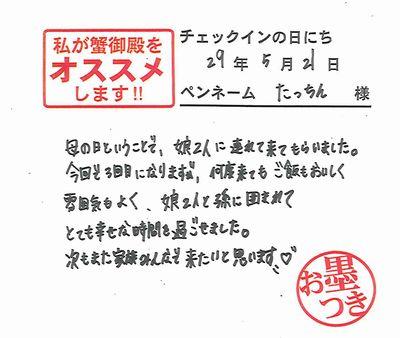 私が蟹御殿を
オススメ
します!!
チェックインの日にち
29年5月21日
ペンネーム たっちん 様
母の日ということで、娘2人に連れて来てもらいました。
今回で3回目になりますが、何度来てもご飯もおいしく
雰囲気もよく、娘2人と孫に囲まれて
とても幸せな時間を過ごせました。
次もまた家族みんなで来たいと思います♡
お墨つき